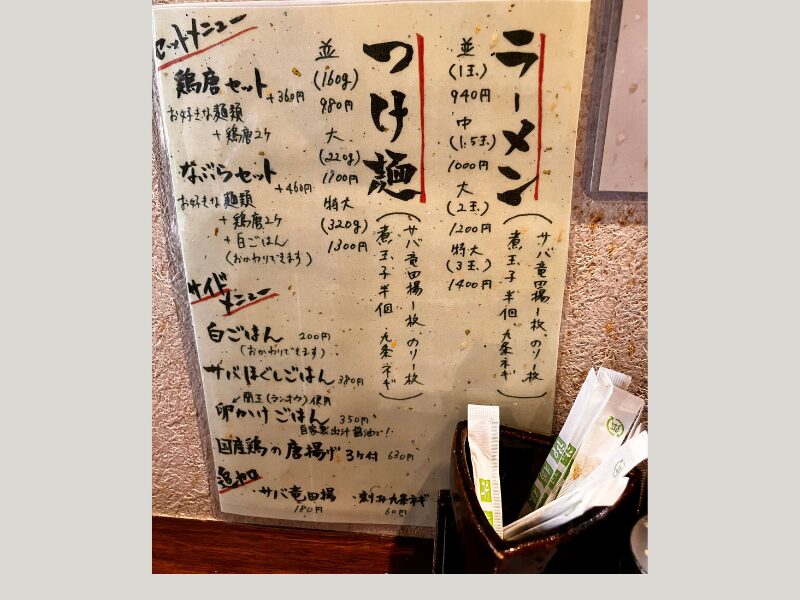 ラーメン
並
(1玉)
940円
中
(1.5玉)
1000円
大
(2玉)
1200円
特大
(3玉)
1400円
(サバ竜田揚1枚、のり1枚
煮玉子半個、九条ネギ)
つけ麺
並
(160g)
980円
大
(220g)
1100円
特大
(320g)
1300円
(サバ竜田揚1枚、のり1枚
煮玉子半個 九条ネギ)
セットメニュー
鶏唐セット
+360円
お好きな麺類
+鶏唐2ヶ
なぶらセット
+460円
お好きな麺類
+鶏唐2ヶ
+白ごはん
(おかわりできます)
サイドメニュー
白ごはん 200円
(おかわりできます)
サバほぐしごはん 380円
蘭王(ランオウ)使用
卵かけごはん 350円
自家製出汁醤油で!
国産鶏の唐揚げ 3ヶ付 630円
追加
・サバ竜田揚 ・刻み九条ネギ
180円 60円